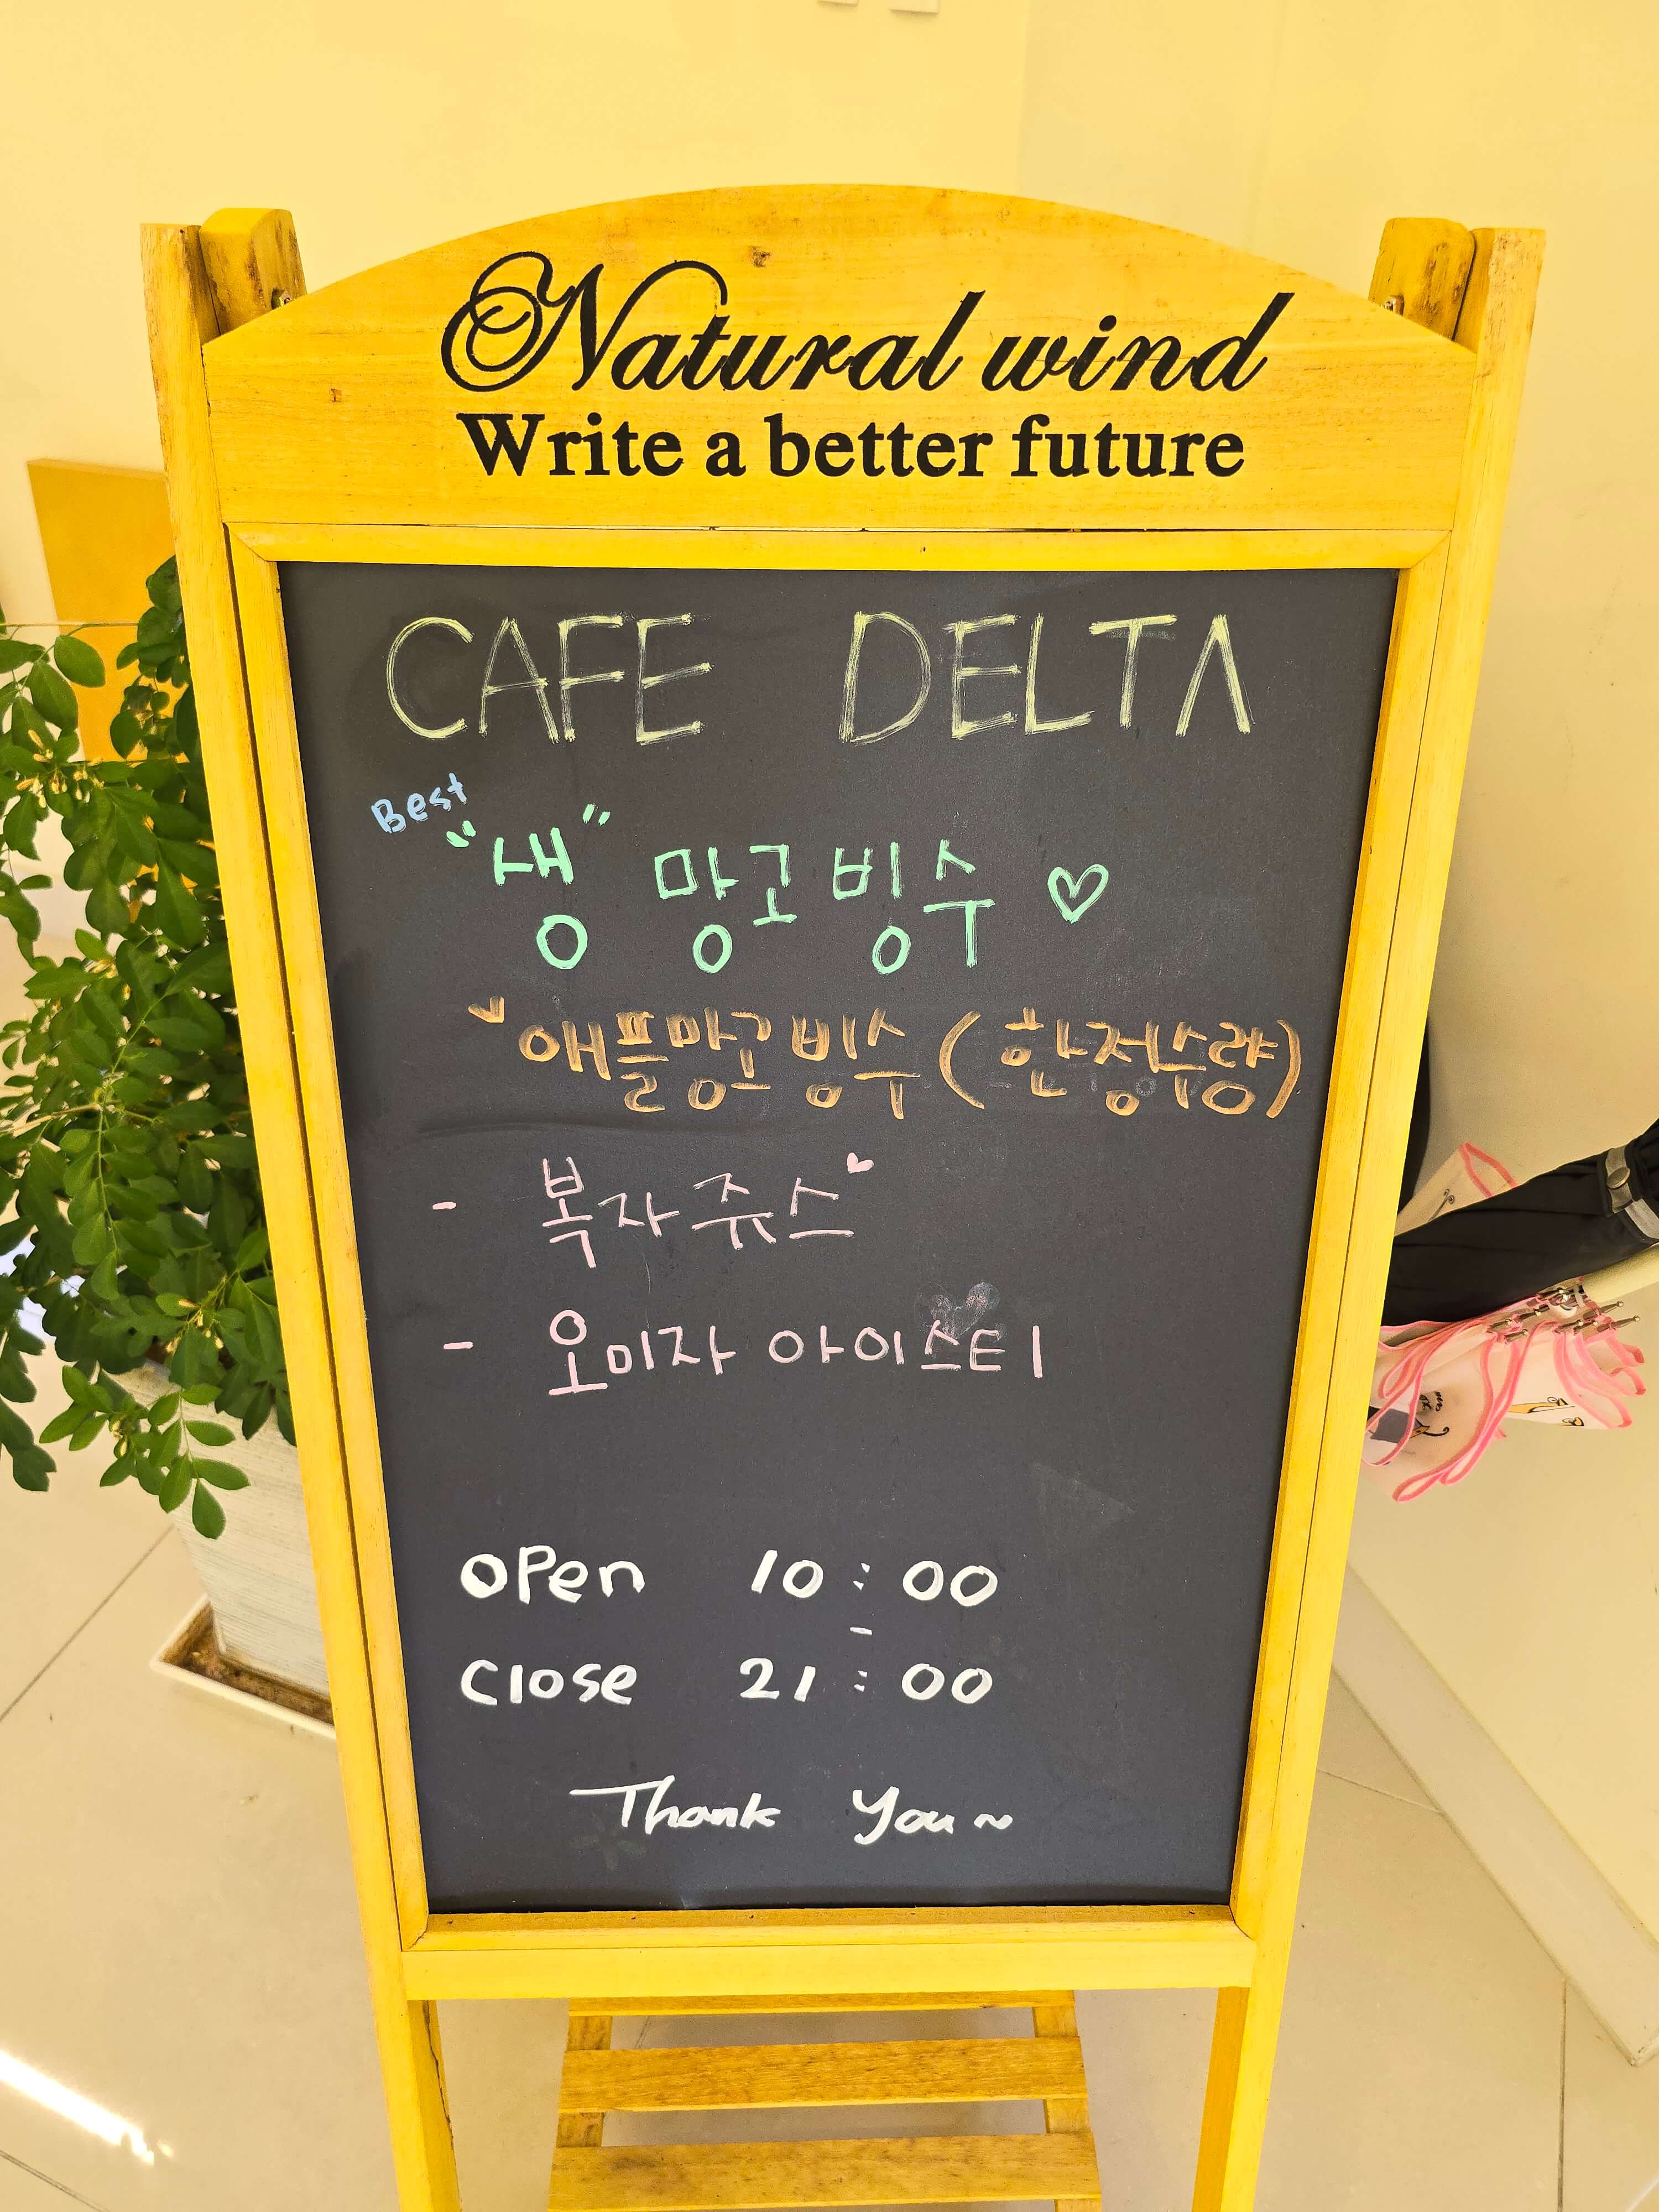 Natural wind
Write a better future
CAFE DELTA
Best
"생" 망고빙수 ♡
애플망고빙수 (한정수량)
- 복자쥬스
- 오미자 아이스티
open 10:00
-
close 21:00
Thank you~